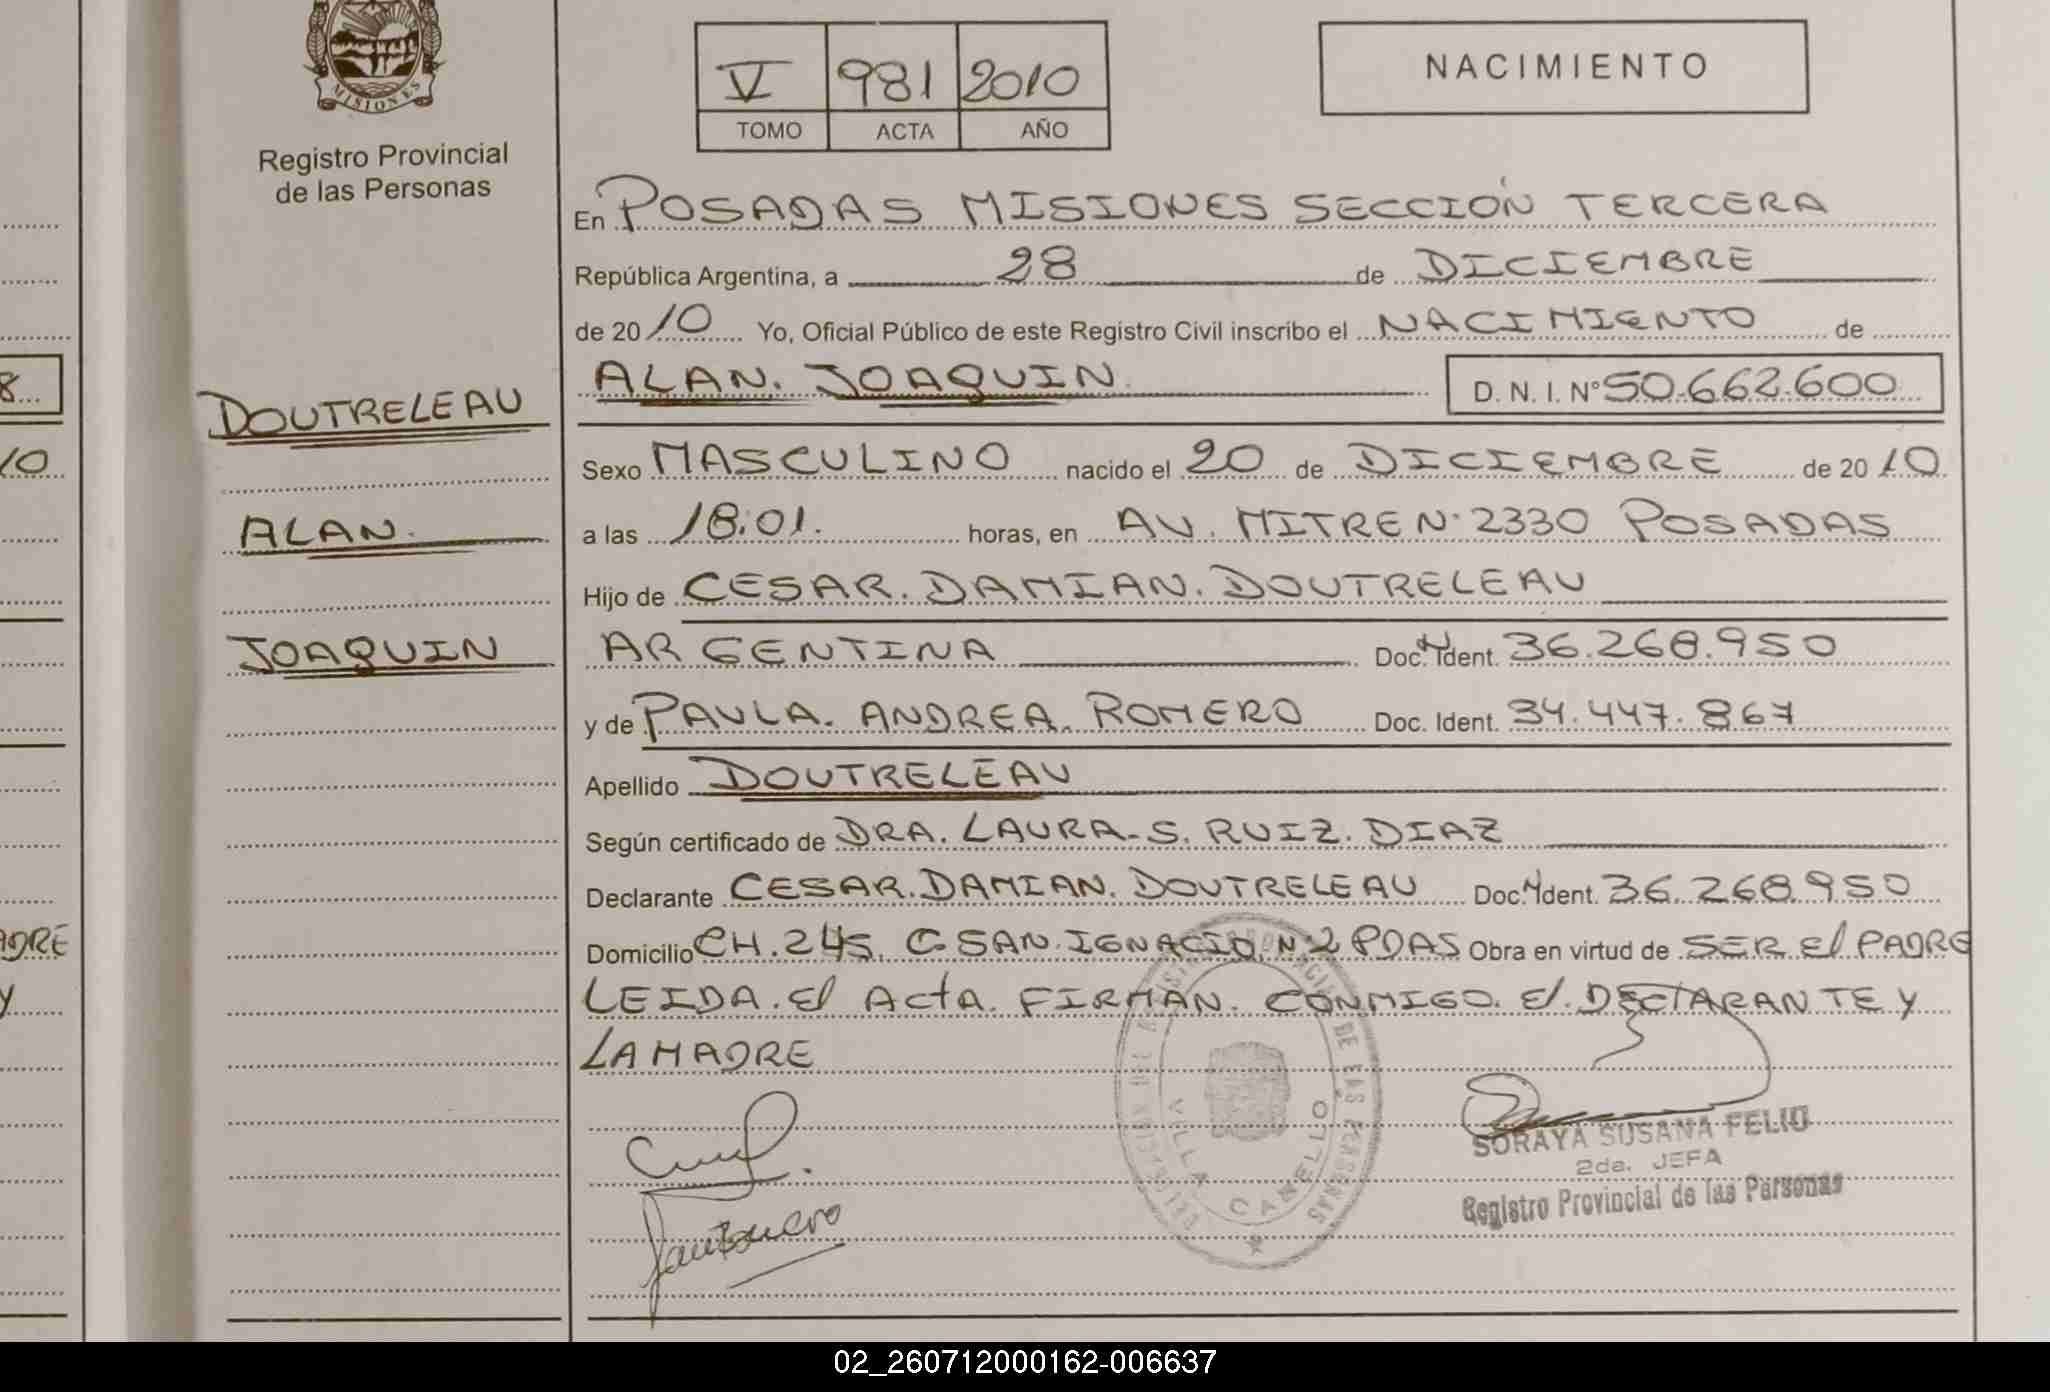 MISIONES
Registro Provincial
de las Personas
DOUTRELEAU
ALAN.
JOAQUIN
V 981 2010
TOMO ACTA AÑO
NACIMIENTO
En POSADAS MISIONES SECCIÓN TERCERA
República Argentina, a 28 de DICIEMBRE
de 2010 Yo, Oficial Público de este Registro Civil inscribo el NACIMIENTO de
ALAN. JOAQUIN. D. N. I. N° 50.662.600
Sexo MASCULINO nacido el 20 de DICIEMBRE de 2010
a las 18:01. horas, en AV. MITRE N° 2330 POSADAS
Hijo de CESAR. DAMIAN. DOUTRELEAU
ARGENTINA Doc. Ident. 36.268.950
y de PAULA. ANDREA. ROMERO Doc. Ident. 34.447.867
Apellido DOUTRELEAU
Según certificado de DRA. LAURA-S. RUIZ. DIAZ
Declarante CESAR. DAMIAN. DOUTRELEAU Doc. Ident. 36.268.950
Domicilio CH. 245. C. SAN. IGNACIO. N° 2 PDAS Obra en virtud de SER El PADRE
LEIDA. El ActA. FIRMAN. CONMIGO. El. DECLARANTE Y
LA MADRE
VILLA CABELLO
SORAYA SUSANA FELIU
2da. JEFA
Registro Provincial de las Personas
8
10
ADRE
y
02_260712000162-006637